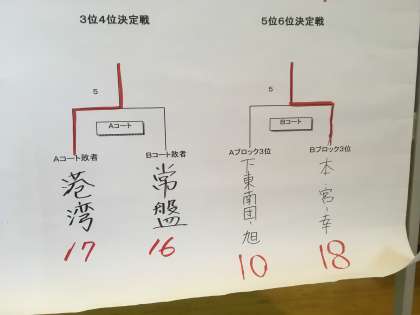 3位4位決定戦
5
Aコート
Aコート敗者
Bコート敗者
港湾
常盤
17
16
5位6位決定戦
5
Bコート
Aブロック3位
Bブロック3位
下東南団・旭
本宮・幸
10
18